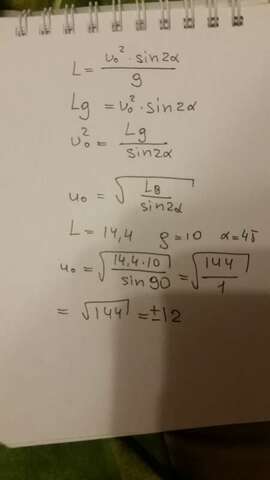 L = υ₀² · sin2α / g
Lg = υ₀² · sin2α
υ₀² = Lg / sin2α
υ₀ = √(Lg / sin2α)
L = 14,4 g = 10 α = 45
υ₀ = √(14,4·10 / sin90) = √(144 / 1)
= √144 = ±12